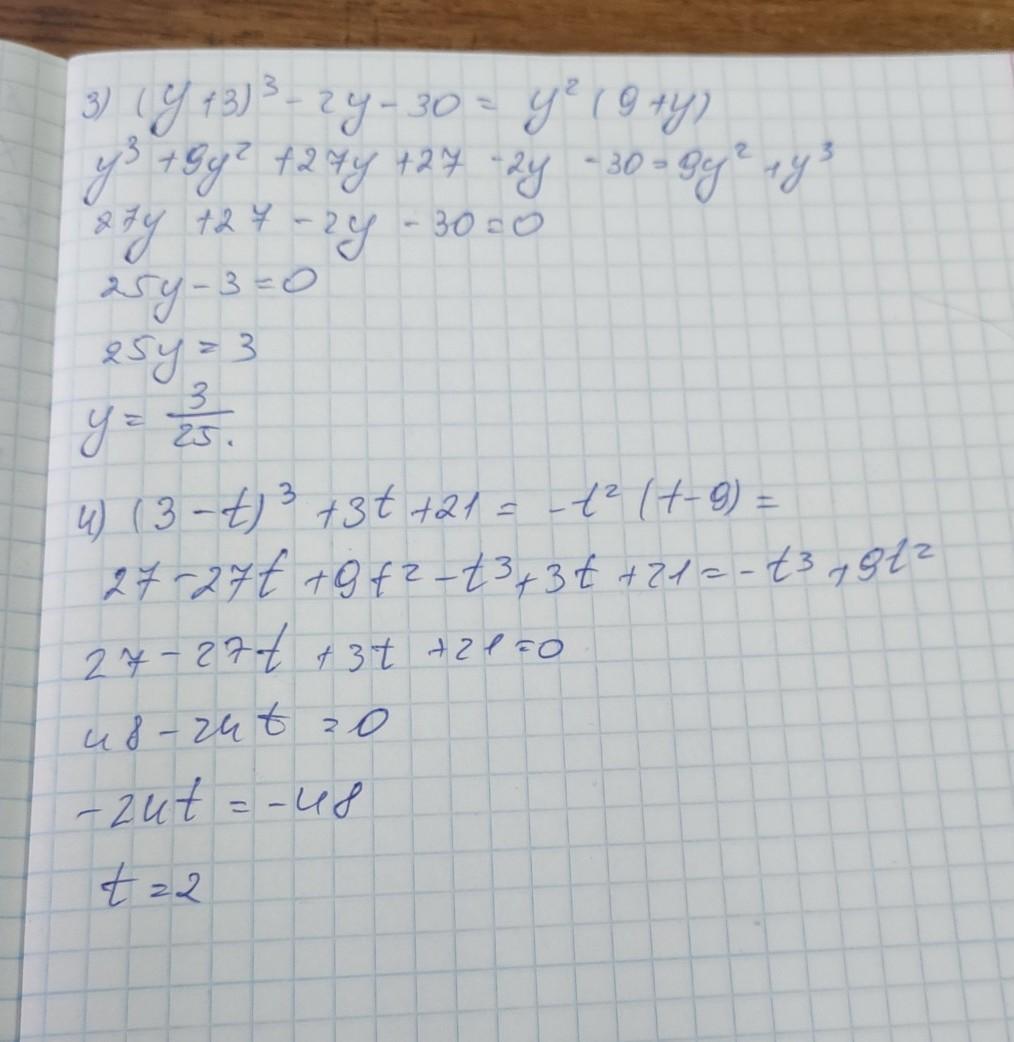 3) (y+3)³ - 2y - 30 = y² (9+y)
y³ + 9y² + 27y + 27 - 2y - 30 = 9y² + y³
27y + 27 - 2y - 30 = 0
25y - 3 = 0
25y = 3
y = 3/25.
4) (3-t)³ + 3t + 21 = -t² (t-9) =
27 - 27t + 9t² - t³ + 3t + 21 = -t³ + 9t²
27 - 27t + 3t + 21 = 0
48 - 24t = 0
-24t = -48
t = 2